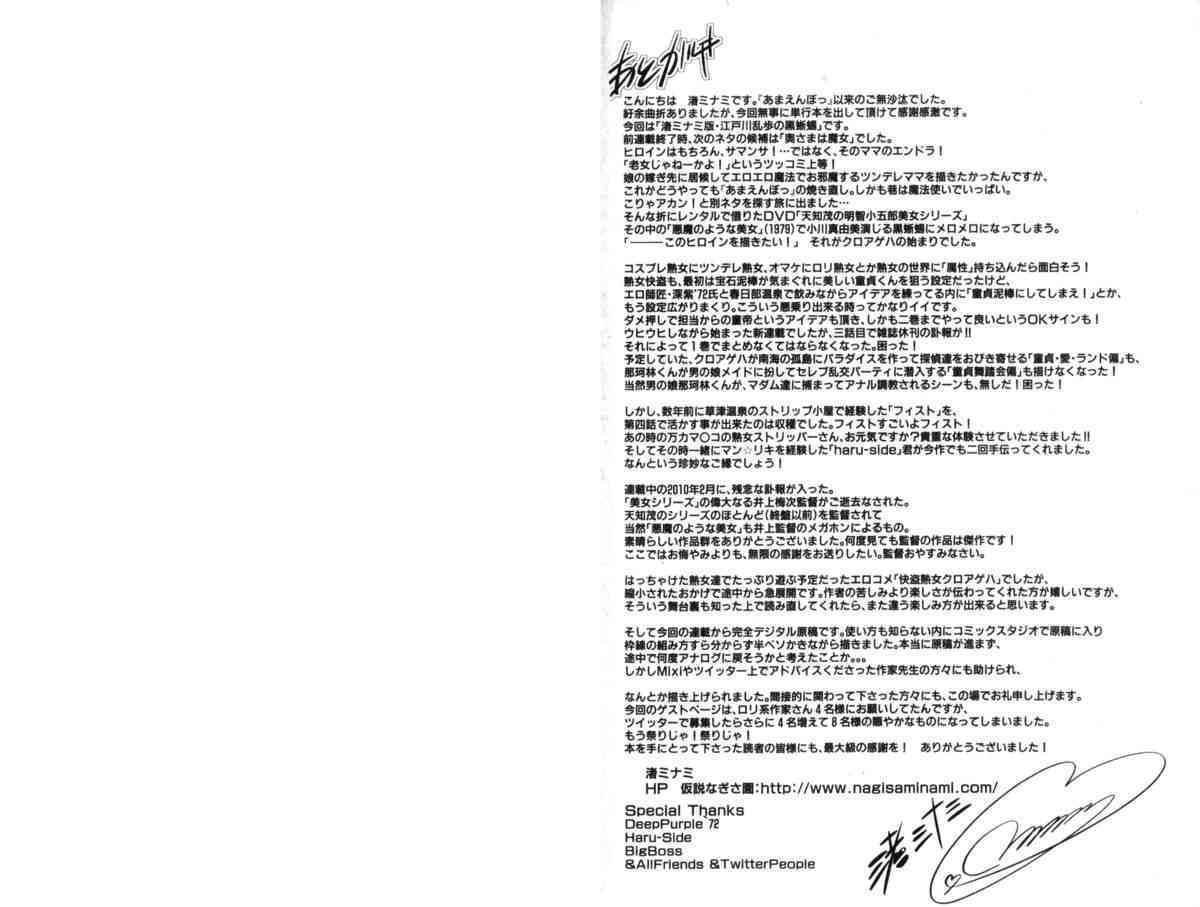 あとガルキ
こんにちは　渚ミナミです。「あまえんぼっ」以来のご無沙汰でした。
紆余曲折ありましたが、今回無事に単行本を出して頂けて感謝感激です。
今回は「渚ミナミ版・江戸川乱歩の黒蜥蜴」です。
前連載終了時、次のネタの候補は「奥さまは魔女」でした。
ヒロインはもちろん、サマンサ！…ではなく、そのママのエンドラ！
「老女じゃねーかよ！」というツッコミ上等！
娘の嫁ぎ先に居候してエロエロ魔法でお邪魔するツンデレママを描きたかったんですが、
これがどうやっても「あまえんぼっ」の焼き直し。しかも巷は魔法使いでいっぱい。
こりゃアカン！と別ネタを探す旅に出ました…
そんな折にレンタルで借りたDVD「天知茂の明智小五郎美女シリーズ」
その中の「悪魔のような美女」（1979）で小川真由美演じる黒蜥蜴にメロメロになってしまう。
「―――このヒロインを描きたい！」　それがクロアゲハの始まりでした。
コスプレ熟女にツンデレ熟女、オマケにロリ熟女とか熟女の世界に「属性」持ち込んだら面白そう！
熟女快盗も、最初は宝石泥棒が気まぐれに美しい童貞くんを狙う設定だったけど、
エロ師匠・深紫'72氏と春日部温泉で飲みながらアイデアを練ってる内に「童貞泥棒にしてしまえ！」とか、
もう設定広がりまくり。こういう悪乗り出来る時ってかなりイイです。
ダメ押しで担当からの童帝というアイデアも頂き、しかも二巻までやって良いというOKサインも！
ウヒウヒしながら始まった新連載でしたが、三話目で雑誌休刊の訃報が!!
それによって1巻でまとめなくてはならなくなった。困った！
予定していた、クロアゲハが南海の孤島にパラダイスを作って探偵達をおびき寄せる「童貞・愛・ランド編」も、
那珂林くんが男の娘メイドに扮してセレブ乱交パーティに潜入する「童貞舞踏会編」も描けなくなった！
当然男の娘那珂林くんが、マダム達に捕まってアナル調教されるシーンも、無しだ！困った！
しかし、数年前に草津温泉のストリップ小屋で経験した「フィスト」を、
第四話で活かす事が出来たのは収穫でした。フィストすごいよフィスト！
あの時の万力マ○コの熟女ストリッパーさん、お元気ですか？貴重な体験させていただきました!!
そしてその時一緒にマン☆リキを経験した「haru-side」君が今作でも二回手伝ってくれました。
なんという珍妙なご縁でしょう！
連載中の2010年2月に、残念な訃報が入った。
「美女シリーズ」の偉大なる井上梅次監督がご逝去なされた。
天知茂のシリーズのほとんど（終盤以前）を監督されて
当然「悪魔のような美女」も井上監督のメガホンによるもの。
素晴らしい作品群をありがとうございました。何度見ても監督の作品は傑作です！
ここではお悔やみよりも、無限の感謝をお送りしたい。監督おやすみなさい。
はっちゃけた熟女達でたっぷり遊ぶ予定だったエロコメ「快盗熟女クロアゲハ」でしたが、
縮小されたおかげで途中から急展開です。作者の苦しみより楽しさが伝わってくれた方が嬉しいですが、
そういう舞台裏も知った上で読み直してくれたら、また違う楽しみ方が出来ると思います。
そして今回の連載から完全デジタル原稿です。使い方も知らない内にコミックスタジオで原稿に入り
枠線の組み方すら分からず半ベソかきながら描きました。本当に原稿が進まず、
途中で何度アナログに戻そうかと考えたことか。。。
しかしMixiやツイッター上でアドバイスくださった作家先生の方々にも助けられ、
なんとか描き上げられました。間接的に関わって下さった方々にも、この場でお礼申し上げます。
今回のゲストページは、ロリ系作家さん4名様にお願いしてたんですが、
ツイッターで募集したらさらに4名増えて8名様の賑やかなものになってしまいました。
もう祭りじゃ！祭りじゃ！
本を手にとって下さった読者の皆様にも、最大級の感謝を！　ありがとうございました！
渚ミナミ
HP　仮説なぎさ園：http://www.nagisaminami.com/
Special Thanks
DeepPurple '72
Haru-Side
BigBoss
&AllFriends &TwitterPeople
渚ミナミ